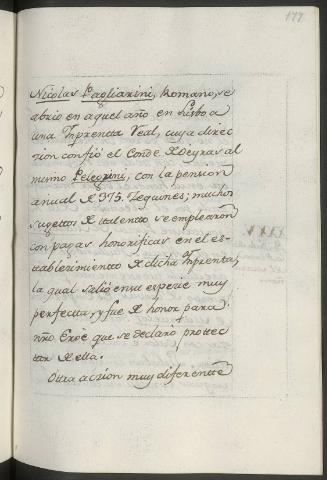 177
Nicolas Pagliarini, Romano, se
abrio en aquel año en Lisboa
una Imprenta Real, cuya direc
zion confió el Conde de Oeyras al
mismo Pelegrini, con la pension
anual de 375. Zequines; muchos
sugettos de ttalentto se emplearon
con pagas honorificas en el es-
ttablezimientto de dicha Imprentta,
la qual salió en su expecie muy
perfectta, y fue de honor para
nr̃o Eroè que se declarò prottec
ttor de ella.
Ottra aczion muy diferentte